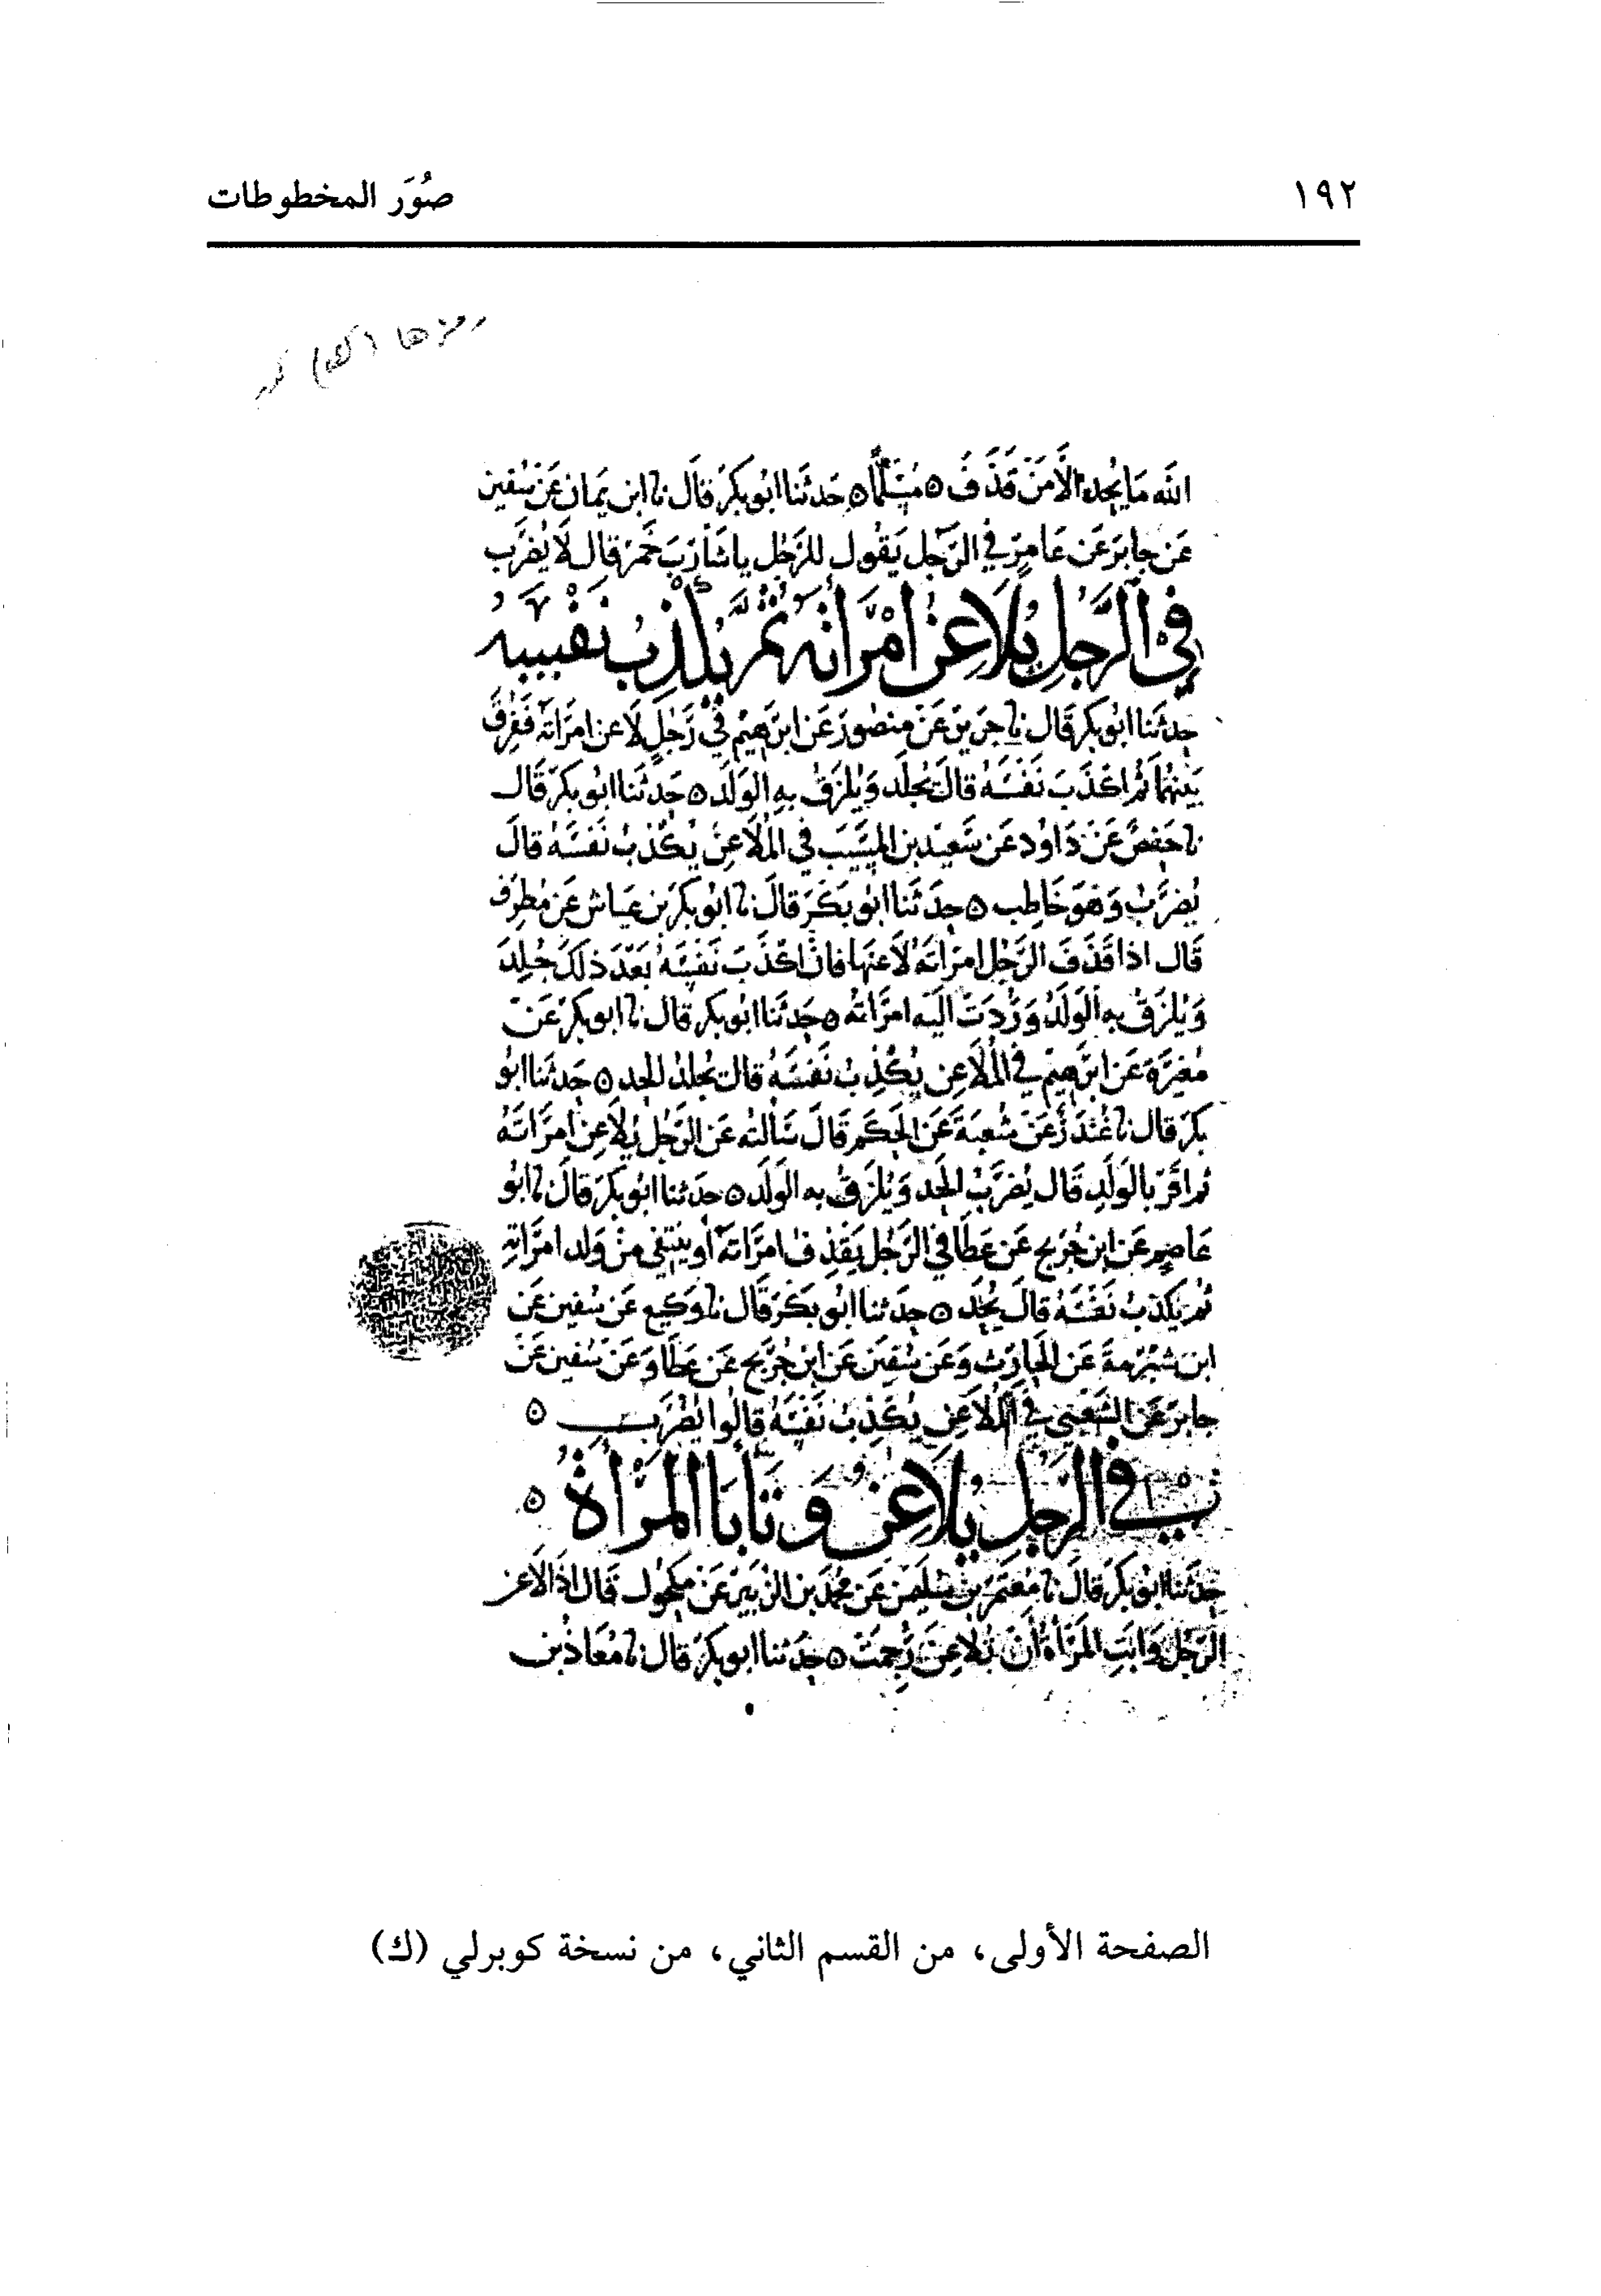 ١٩٢
صُوَر المخطوطات
رمزها (ك)
الله مَا يُجلد الَّا مَنْ قَذَفَ ٥ مُسْلِمًا ٥ حَدثنَا ابُو بكر قالَ نا ابن يمان عَن سُفين
عَن جابر عَن عَامر في الرّجل يَقُول للرّجُل يا شَارَبَ خَمر قال لَا يُضرَب
في الرَّجلِ يُلَاعِنُ امْرَاتَه ثُمَّ يُكذِبُ نفسَه
حدثنا ابُو بكر قَال نا جَرير عَنْ منصُور عَن ابرَهيم في رَجُلٍ لَاعن امرَاته فَفَرق
بَينهُما ثم اكذَبَ نَفسَهُ قالَ يُجلَد وَيُلزقُ بهِ الوَلَد ٥ حَدثنَا ابُو بكر قَال
نا حَفص عَنْ دَاوُد عَن سَعيد بن المسَيَّب في المُلَاعِن يُكذّبُ نَفسَهُ قالَ
يُضرَبُ وَهوَ خَاطِب ٥ حدثَنا ابُو بَكر قالَ نا ابُو بكر بن عياش عَن مُطرف
قَال اذا قَذَفَ الرَّجُل امرَاتَهُ لَاعنَها فان اكذَبَ نَفسَهُ بَعْدَ ذلكَ جُلِدَ
وَيُلزَقُ بهِ الوَلَدُ وَرُدَت اليَه امرَاتهُ ٥ حَدثنَا ابُو بكر قال نا ابو بكر عَن
مُغيرَة عَن ابرَهيم في المُلَاعِن يُكذِبُ نَفسَهُ قال يُجلدُ الحد ٥ حَدثنا ابُو
بكرَ قال نا غُندَر عَن شُعبَة عَن الحَكم قَالَ سَالته عَن الرَّجُل يُلَاعِن امرَاتَهُ
ثم اقَرّ بالوَلَدِ قَال يُضرَبُ الحَد وَيُلزَقُ به الوَلَد ٥ حَدثنا ابُو بكر قالَ نا ابُو
عَاصِم عَن ابن جُرَيج عَن عَطا في الرّجُل يَقذِفُ امرَاتَهُ او يَنتفي مِن وَلد امرَاتِه
ثم يكذبُ نَفسَهُ قالَ يُجلَد ٥ حدَثنا ابُو بَكر قَال نا وَكيع عَن سُفين عَن
ابن شُبرُمة عَن الحَارث وَعَن سُفيَن عَن ابن جُرَيج عَن عَطا وَعَن سُفين عَن
جابر عَن الشَّعبي في المُلاعن يُكذِبُ نَفسَهُ قالُوا يُضرَب ٥
في الرّجل يُلاعِنُ وَتَابَا المَرْأَةُ ٥
حَدثنا ابُو بكر قالَ نا مُعتَمر بن سُليمن عَن محمد بن الزبَير عَن مكحُول قَال اذا لَاعَن
الرّجُل وَابَتِ المَرْأةُ أن تُلاعِنَ رُجمَتْ ٥ حَدثنا ابو بكر قال نا مُعَاذ بن
الصفحة الأولى، من القسم الثاني، من نسخة كوبرلي (ك)